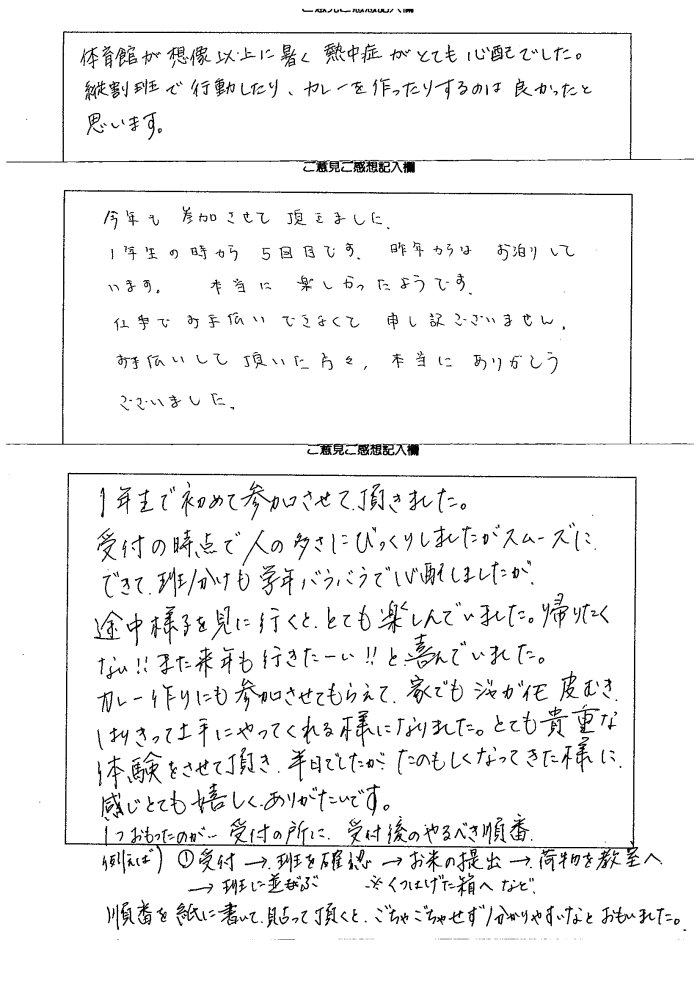 ご意見ご感想記入欄
体育館が想像以上に暑く熱中症がとても心配でした。
縦割班で行動したり、カレーを作ったりするのは良かったと
思います。
ご意見ご感想記入欄
今年も参加させて頂きました。
1年生の時から5回目です。昨年からは お泊りして
います。 本当に楽しかったようです。
仕事でお手伝いできなくて申し訳ございません。
お手伝いして頂いた方々、本当にありがとう
ございました。
ご意見ご感想記入欄
1年生で初めて参加させて頂きました。
受付の時点で人の多さにびっくりしましたがスムーズに
できて、班分けも学年バラバラで心配しましたが、
途中様子を見に行くと、とても楽しんでいました。帰りたく
ない!!また来年も行きたーい!!と喜んでいました。
カレー作りにも参加させてもらえて、家でもジャガイモ皮むき、
はりきって上手にやってくれる様になりました。とても貴重な
体験をさせて頂き、半日でしたが、たのもしくなってきた様に
感じとても嬉しく、ありがたいです。
1つおもったのが… 受付の所に、受付後のやるべき順番、
例えば) ①受付→班を確認→お米の提出→荷物を教室へ
→班に並ぶ ※くつはげた箱へ など、
順番を紙に書いて、貼って頂くと、ごちゃごちゃせず分かりやすいなとおもいました。